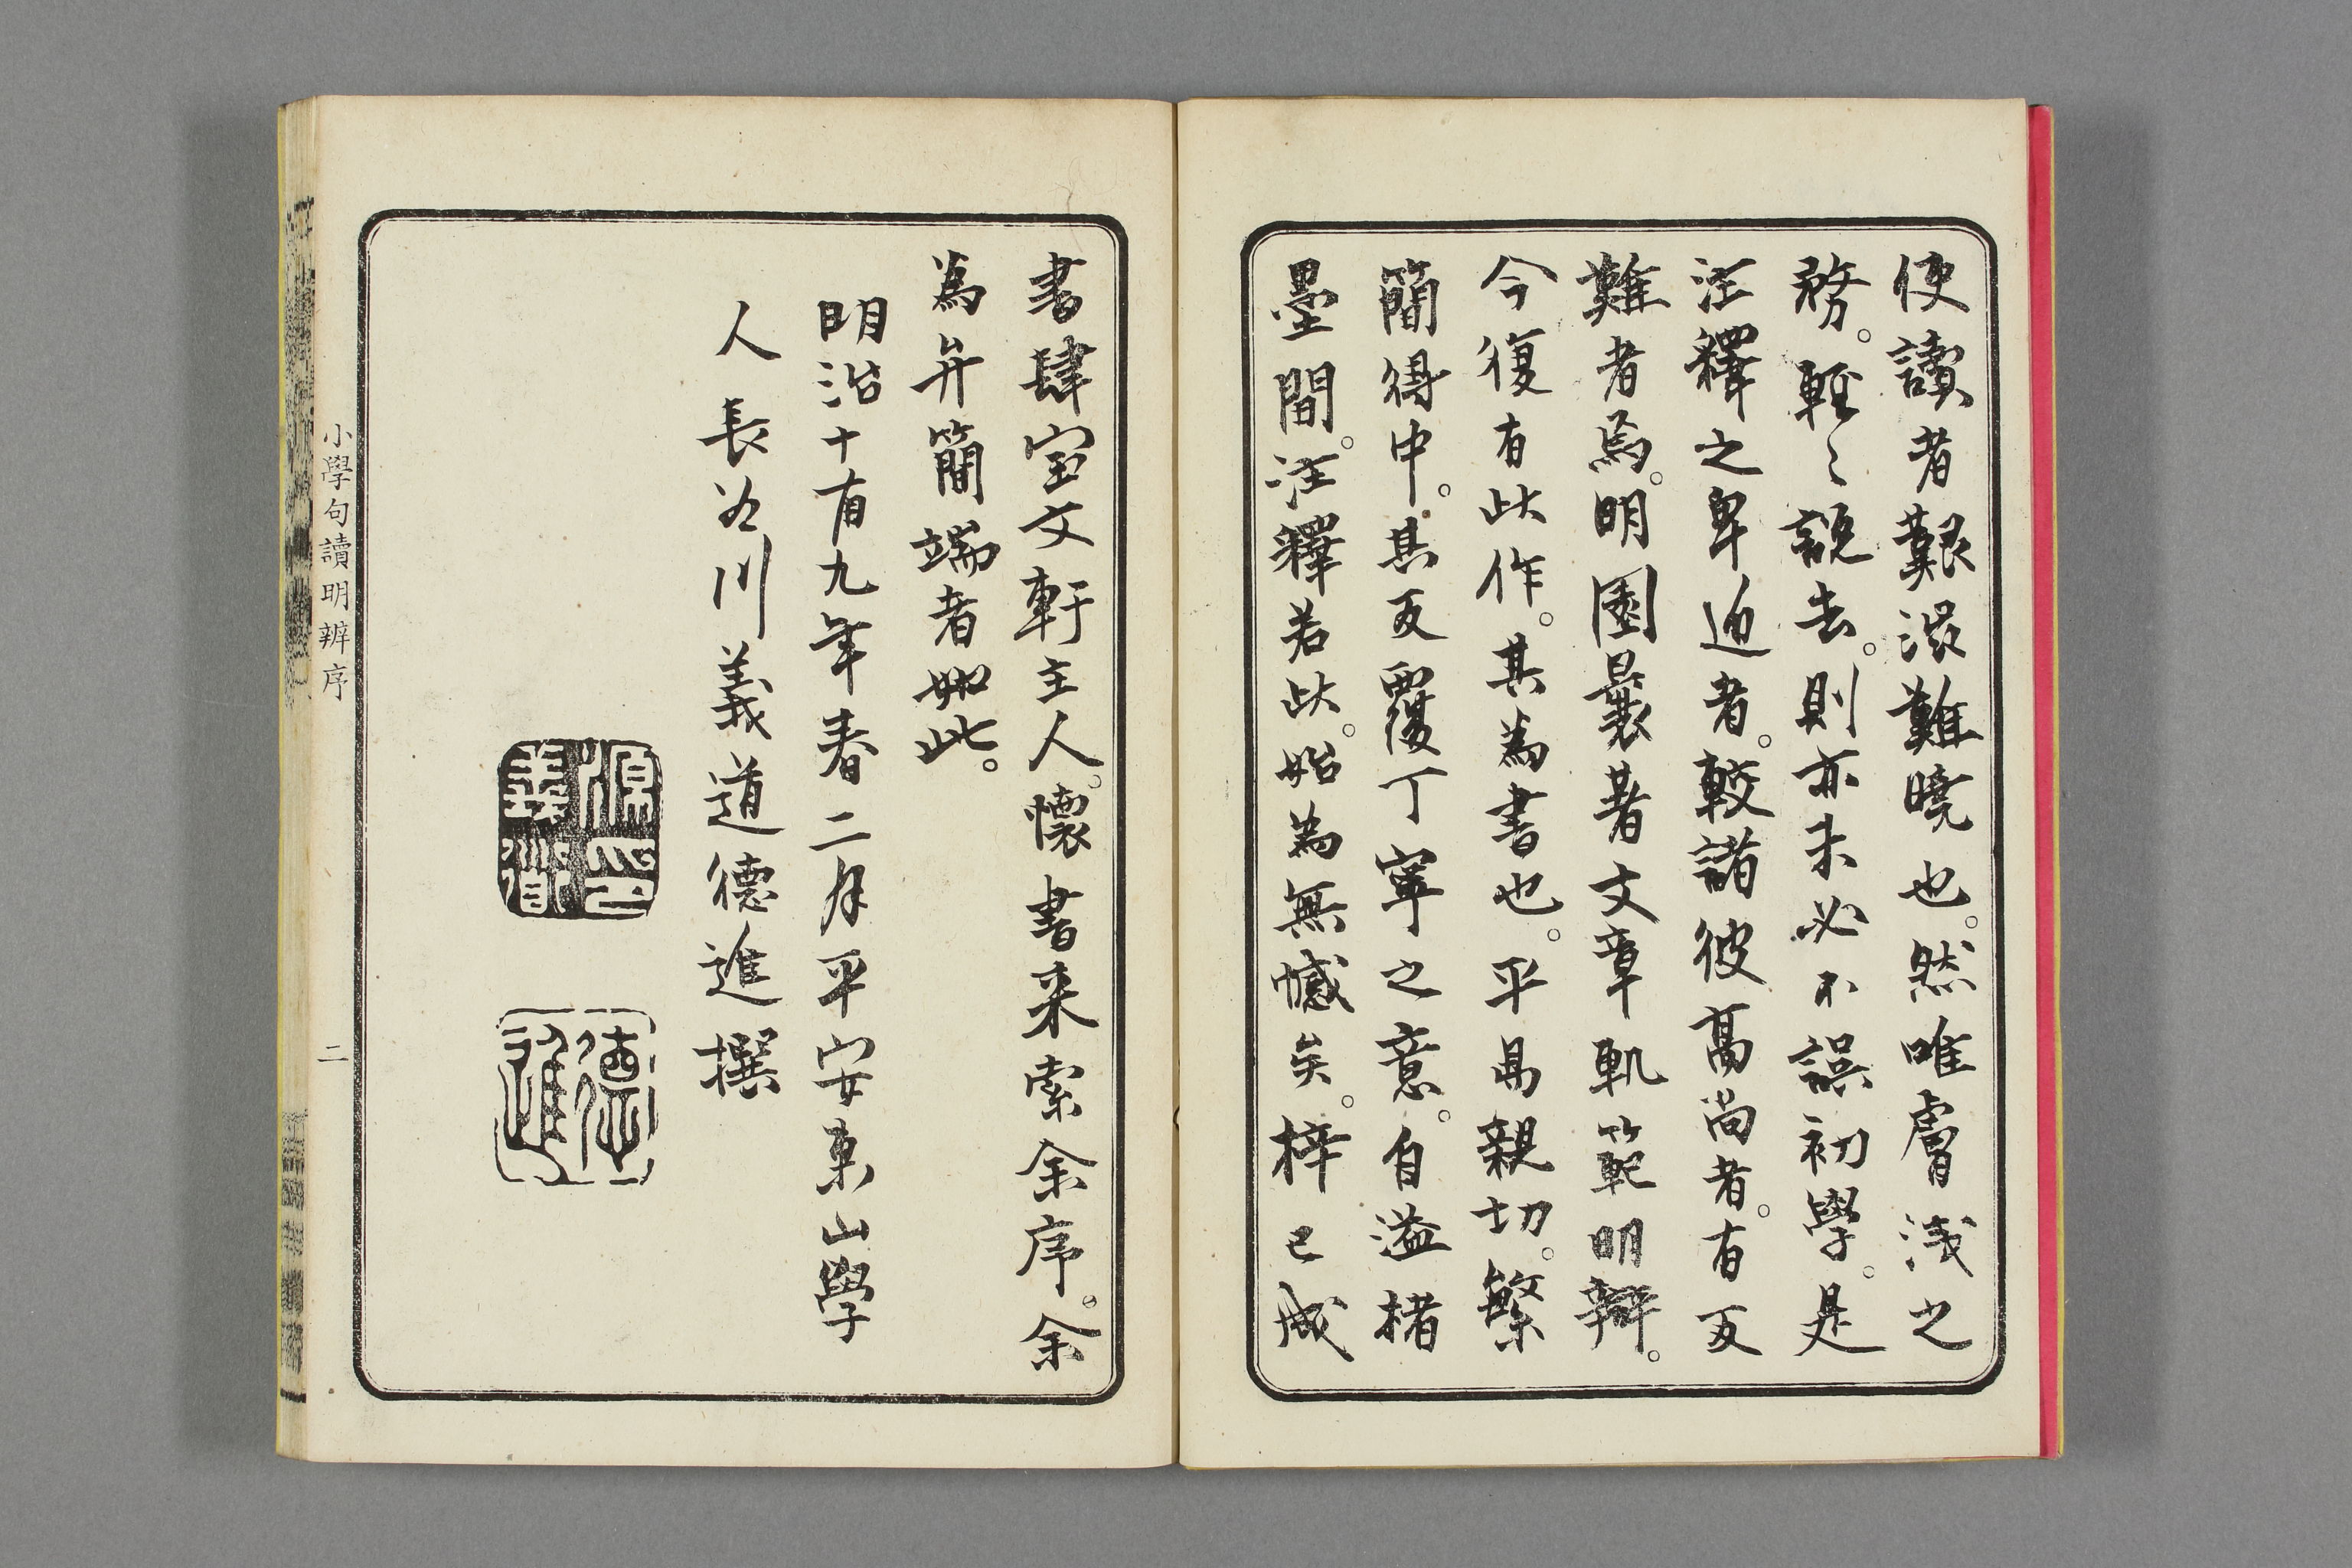 使讀者艱澁難曉也。然唯膚淺之
務。輕〻説去。則亦未必不誤初學。是
注釋之卑近者。較諸彼高尚者。有反
難者焉。明園曩著文章軌範明辯。
今復有此作。其為書也。平易親切。繁
簡得中。其反覆丁寧之意。自溢楮
墨間。注釋若此。始為無憾矣。梓已成
書肆宝文軒主人。懷書来索余序。余
為弁簡端者如此。
明治十有九年春二月平安東山學
人長谷川義道德進撰
源印義道
德進
小學句讀明辨序
二